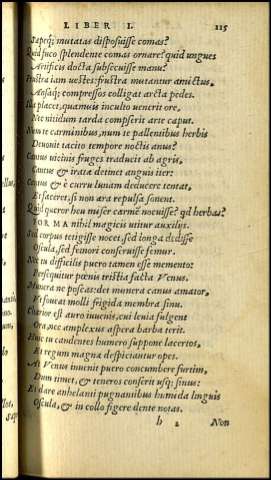 LIBER I. 115
Sæpeq; mutatas disposuisse comas?
Quid fuco splendente comas ornare? quid ungues
Artificis docta subsecuisse manu?
Frustra iam uestes: frustra mutantur amictus,
Ansaq; compressos colligat arcta pedes.
Illa placet, quamuis inculto uenerit ore,
Nec nitidum tarda compserit arte caput.
Num te carminibus, num te pallentibus herbis
Deuouit tacito tempore noctis anus?
Cantus uicinis fruges traducit ab agris,
Cantus & iratæ detinet anguis iter:
Cantus & è curru lunam deducere tentat,
Et faceret, si non æra repulsa sonent.
Quid queror heu miser carmē nocuisse? qd herbas?
FORMA nihil magicis utitur auxilijs.
Sed corpus tetigisse nocet, sed longa dedisse
Oscula, sed femori conseruisse femur.
Nec tu difficilis puero tamen esse memento:
Persequitur pœnis tristia facta Venus.
Munera ne poscas: det munera canus amator,
Vt foueat molli frigida membra sinu.
Charior est auro iuuenis, cui leuia fulgent
Ora, nec amplexus aspera barba terit.
Huic tu candentes humero suppone lacertos,
Et regum magnæ despiciantur opes.
At Venus inuenit puero concumbere furtim,
Dum timet, & teneros conserit usq; sinus:
Et dare anhelanti pugnantibus humida linguis
Oscula, & in collo figere dente notas.
h 2 Non